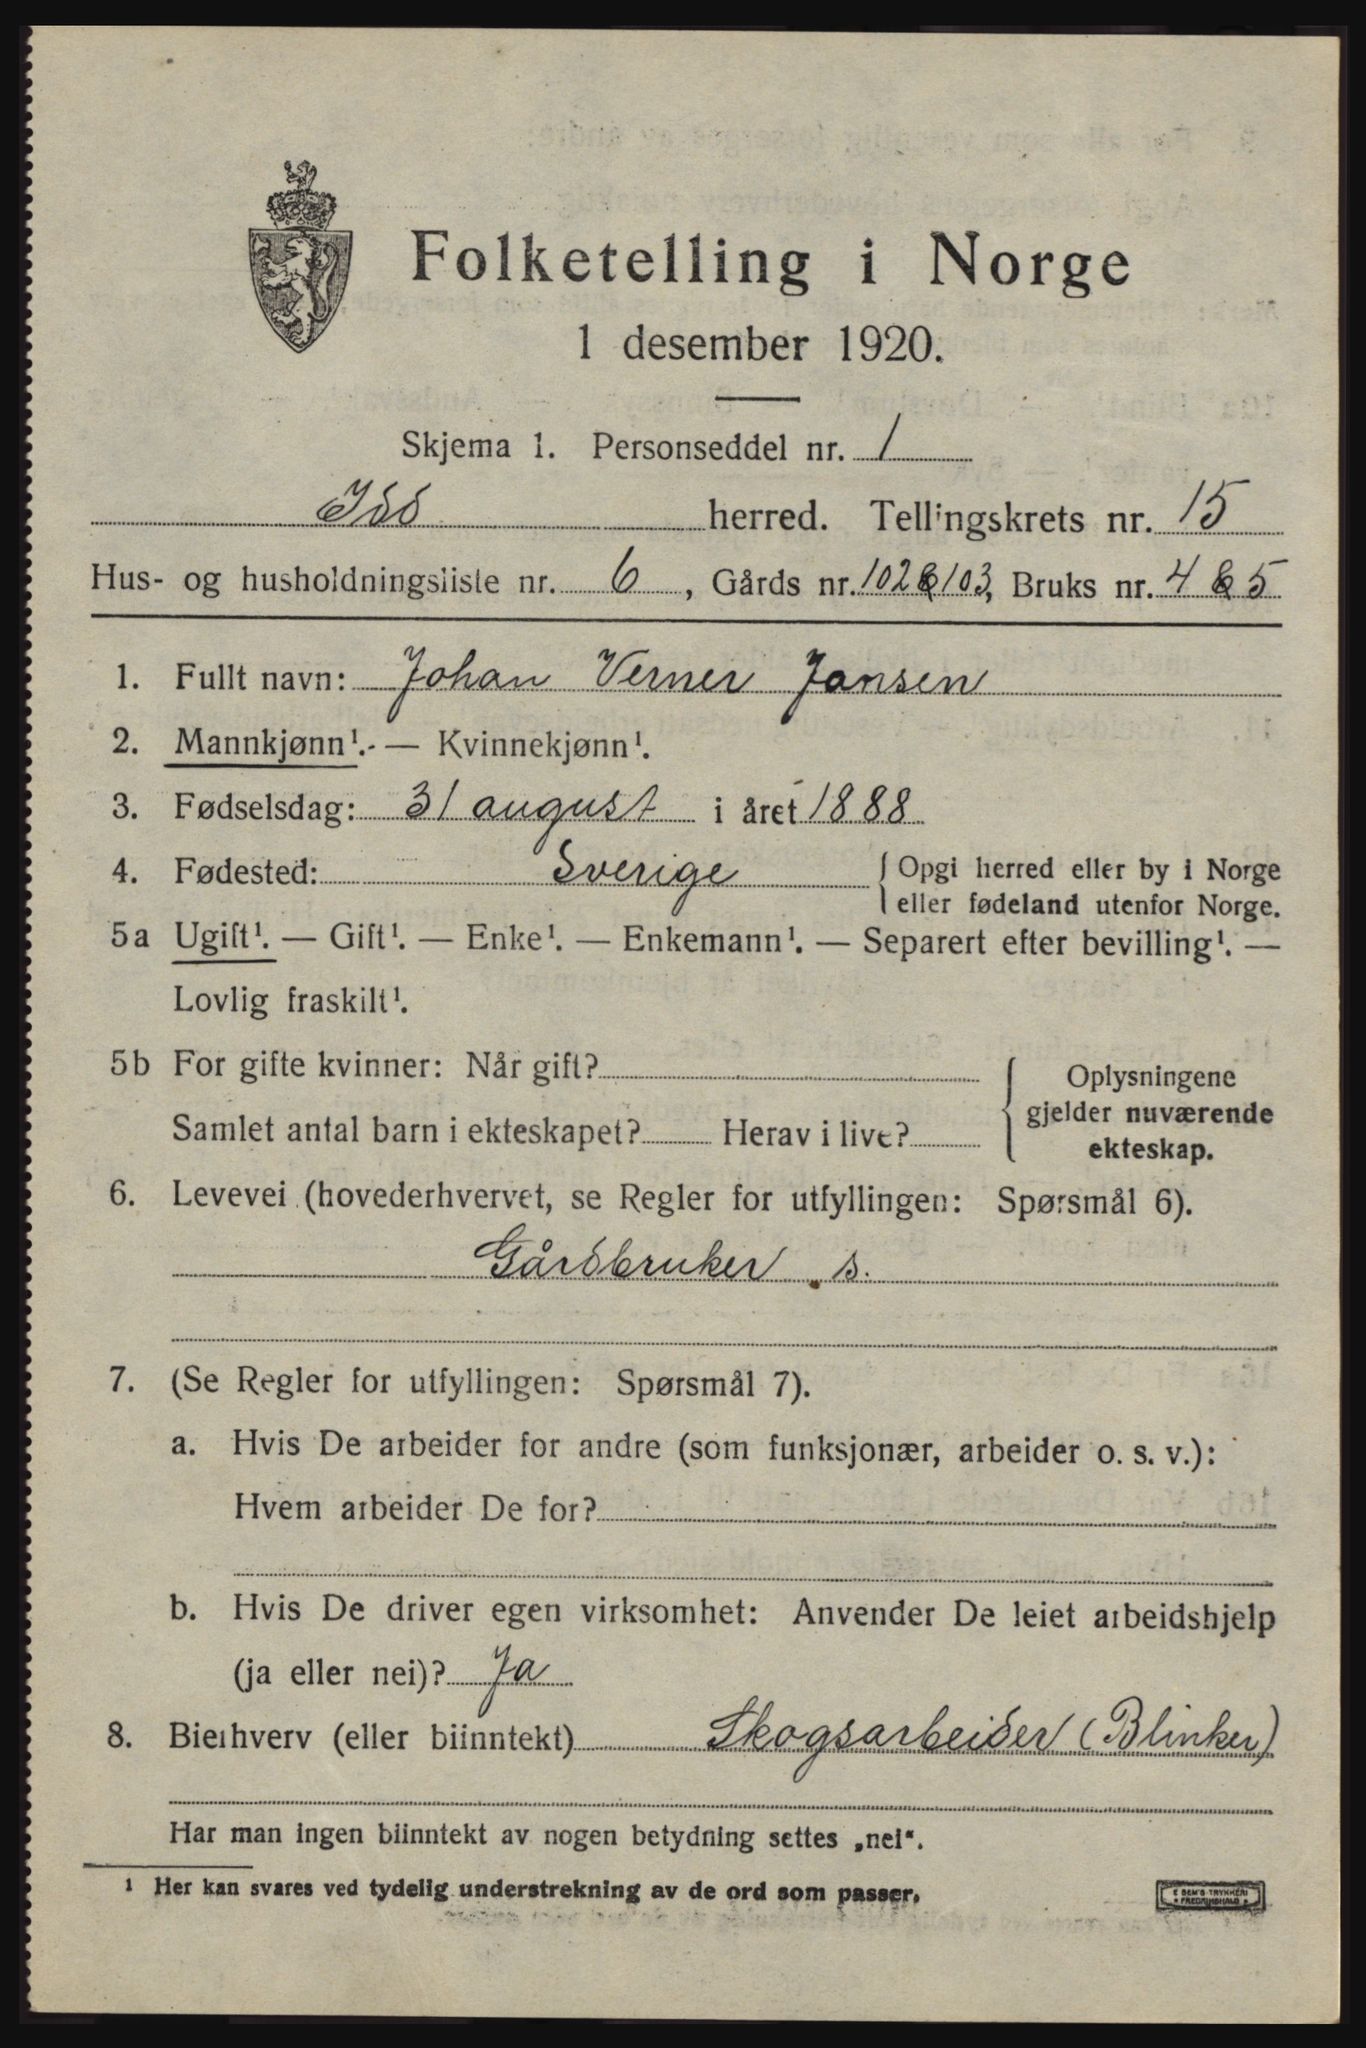 Folketelling i Norge
1 desember 1920.
Skjema 1. Personseddel nr. 1
Idd herred. Tellingskrets nr. 15
Hus- og husholdningsliste nr. 6, Gårds nr. 102 & 103, Bruks nr. 4 & 5
1. Fullt navn: Johan Verner Jansen
2. Mannkjønn¹. — Kvinnekjønn¹.
3. Fødselsdag: 31 august i året 1888
4. Fødested: Sverige { Opgi herred eller by i Norge
eller fødeland utenfor Norge.
5a Ugift¹. — Gift¹. — Enke¹. — Enkemann¹. — Separert efter bevilling¹. —
Lovlig fraskilt¹.
5b For gifte kvinner: Når gift? { Oplysningene
gjelder nuværende
Samlet antal barn i ekteskapet? Herav i live?
ekteskap.
6. Levevei (hovederhvervet, se Regler for utfyllingen: Spørsmål 6).
Gårdbruker s.
7. (Se Regler for utfyllingen: Spørsmål 7).
a. Hvis De arbeider for andre (som funksjonær, arbeider o. s. v.):
Hvem arbeider De for?
b. Hvis De driver egen virksomhet: Anvender De leiet arbeidshjelp
(ja eller nei)? Ja
8. Bierhverv (eller biinntekt) Skogsarbeider (Blinker)
Har man ingen biinntekt av nogen betydning settes „nei“.
¹ Her kan svares ved tydelig understrekning av de ord som passer.
E SEM'S TRYKKERI
FREDRIKSHALD